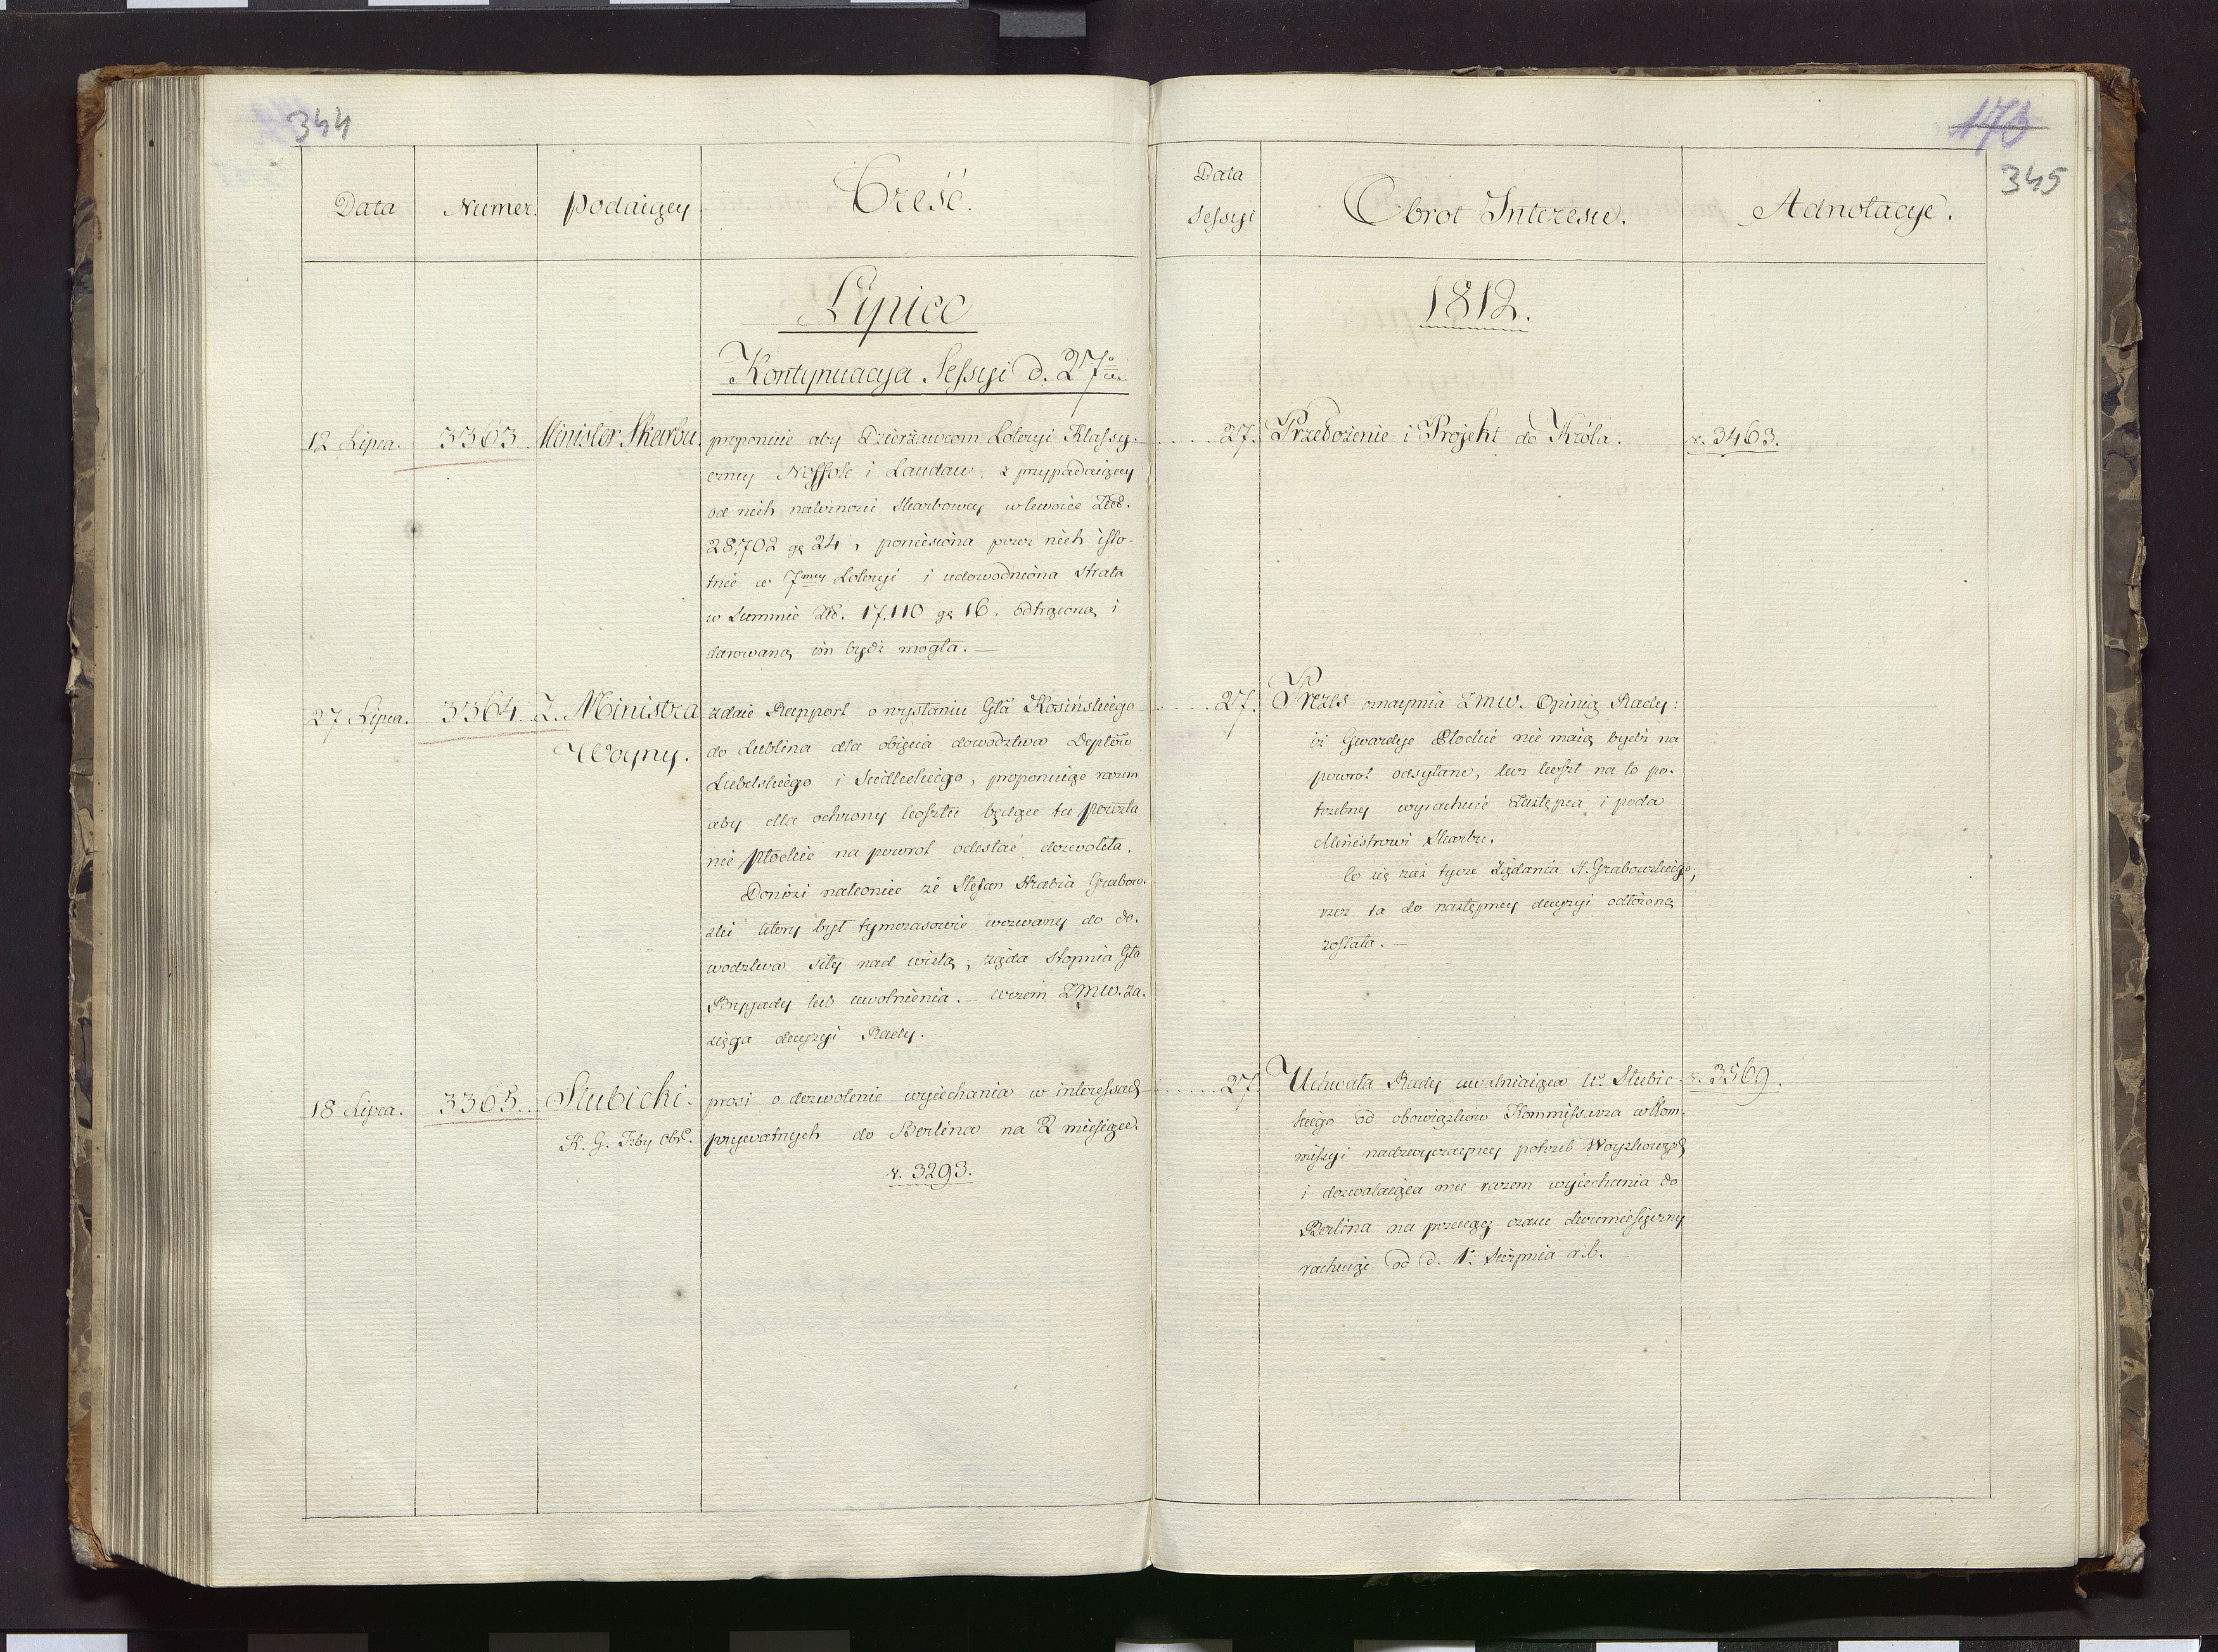 344
Data
Numer.
Podaiący
Treść.
Lipiec
Kontynuacya Sessyi d. 27°
12 Lipca.
3363.
Minister Skarbu.
proponuie aby Dzierżawcom Loteryi Klassy-
czney Noffok i Landau z przypadaiącey
od nich należności Skarbowey w kwocie Złł.
28,702 gr 24, poniesiona przez nich isto-
tnie w 7mey Loteryi i udowodniona strata
w Summie Złł. 17,110 gr 16. odtrąconą i
darowaną im bydź mogła. —
27 Lipca.
3364.
Z. Ministra
Woyny.
zdaie Rapport o wysłaniu Gła Kosińskiego
do Lublina dla obięcia dowodztwa Deptów
Lubelskiego i Siedleckiego, proponuiąc razem
aby dla ochrony kosztu będące tu
nie Płockie na powrot odesłać dozwoliła.
Donosi nakoniec że Stefan Hrabia Grabow-
ski ktory był tymczasowie wezwany do do-
wodztwa siły nad wisłą; żąda stopnia Gła
Brygady lub uwolnienia. — w czem ZMW. za-
sięga decyzyi Rady.
18 Lipca.
3365.
Słubicki.
K. G. Izby Obr.
prosi o dozwolenie wyiechania w interessach
prywatnych do Berlina na 2 miesiące.
v. 3293.
173
345
Data
Sessyi
Obrot Interesu.
Adnotacye.
1812.
27.
Przełożenie i Projekt do Króla.
v. 3463.
27.
Prezes oznaymia ZMW. Opinią Rady:
iż Gwardye Płockie nie maią bydź na
powrot odsyłane, lecz koszt na to po-
trzebny wyrachuie Zastępca i poda
Ministrowi Skarbu.
Co się zaś tycze żądania H. Grabowskiego,
rzecz ta do następney decyzyi odłożoną
została. —
27.
Uchwała Rady uwalniaiąca Ur. Słubic-
kiego od obowiązkow Kommissarza w Kom-
missyi nadzwyczayney potrzeb Woyskowych
i dozwalaiąca mu razem wyiechania do
Berlina na przeciąg czasu dwumiesięczny
rachuiąc od d. 1. Sierpnia r. b. —
v. 3569.